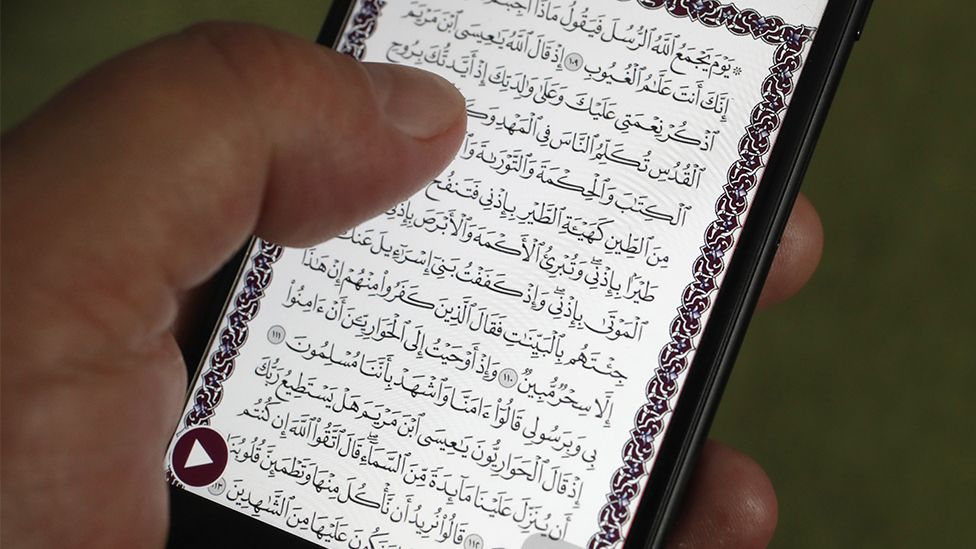 ۞ يَوْمَ يَجْمَعُ ٱللَّهُ ٱلرُّسُلَ فَيَقُولُ مَاذَآ أُجِبْتُمْ
إِنَّكَ أَنتَ عَلَّٰمُ ٱلْغُيُوبِ ١٠٩ إِذْ قَالَ ٱللَّهُ يَٰعِيسَى ٱبْنَ مَرْيَمَ
ٱذْكُرْ نِعْمَتِى عَلَيْكَ وَعَلَىٰ وَٰلِدَتِكَ إِذْ أَيَّدتُّكَ بِرُوحِ
ٱلْقُدُسِ تُكَلِّمُ ٱلنَّاسَ فِى ٱلْمَهْدِ
ٱلْكِتَٰبَ وَٱلْحِكْمَةَ وَٱلتَّوْرَىٰةَ
مِنَ ٱلطِّينِ كَهَيْـَٔةِ ٱلطَّيْرِ بِإِذْنِى فَتَنفُخُ
طَيْرًۢا بِإِذْنِى وَتُبْرِئُ ٱلْأَكْمَهَ وَٱلْأَبْرَصَ بِإِذْنِى
ٱلْمَوْتَىٰ بِإِذْنِى وَإِذْ كَفَفْتُ بَنِىٓ إِسْرَٰٓءِيلَ عَنكَ
جِئْتَهُم بِٱلْبَيِّنَٰتِ فَقَالَ ٱلَّذِينَ كَفَرُوا۟ مِنْهُمْ إِنْ هَٰذَآ
إِلَّا سِحْرٌ مُّبِينٌ ١١٠ وَإِذْ أَوْحَيْتُ إِلَى ٱلْحَوَارِيِّـۧنَ أَنْ ءَامِنُوا۟
بِى وَبِرَسُولِى قَالُوٓا۟ ءَامَنَّا وَٱشْهَدْ بِأَنَّنَا مُسْلِمُونَ ١١١
إِذْ قَالَ ٱلْحَوَارِيُّونَ يَٰعِيسَى ٱبْنَ مَرْيَمَ هَلْ يَسْتَطِيعُ رَبُّكَ
أَن يُنَزِّلَ عَلَيْنَا مَآئِدَةً مِّنَ ٱلسَّمَآءِ قَالَ ٱتَّقُوا۟ ٱللَّهَ إِن كُنتُم
١١٢ قَالُوا۟ نُرِيدُ أَن نَّأْكُلَ مِنْهَا وَتَطْمَئِنَّ قُلُوبُنَا
وَنَكُونَ عَلَيْهَا مِنَ ٱلشَّٰهِدِينَ ١١٣